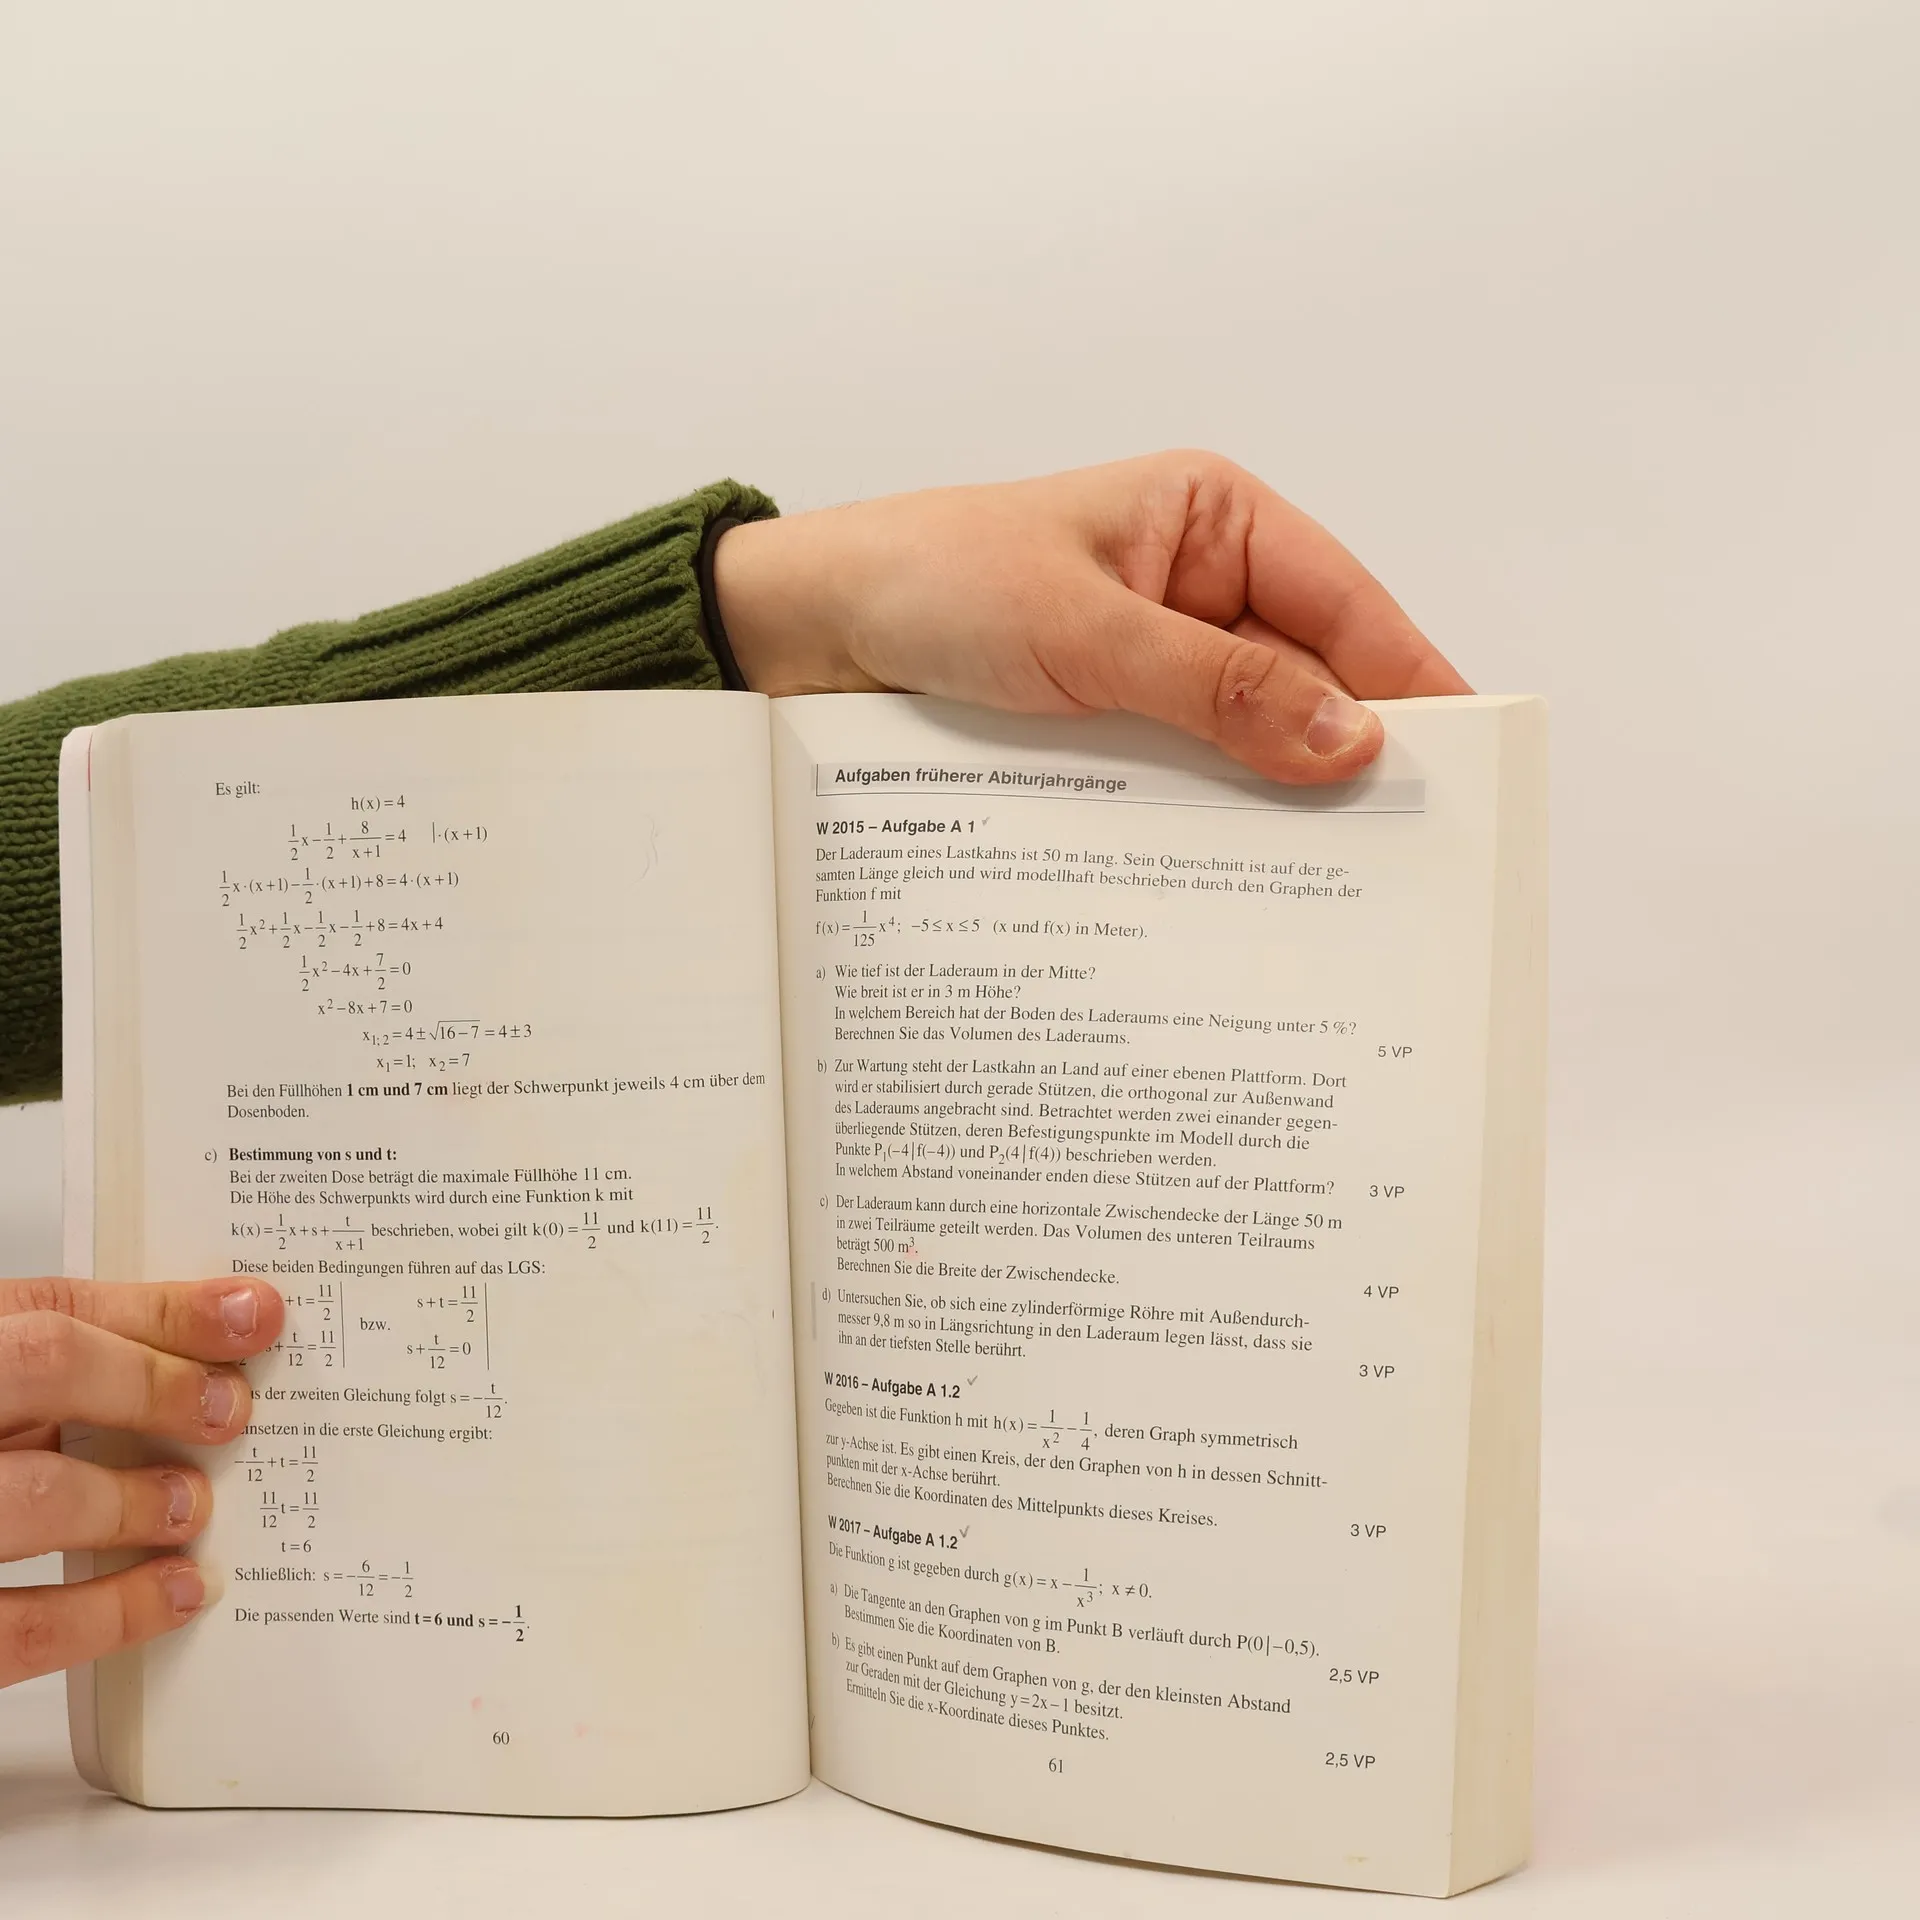 Es gilt:
h(x) = 4
1/2 x − 1/2 + 8/(x+1) = 4 | · (x+1)
1/2 x · (x+1) − 1/2 · (x+1) + 8 = 4 · (x+1)
1/2 x² + 1/2 x − 1/2 x − 1/2 + 8 = 4x + 4
1/2 x² − 4x + 7/2 = 0
x² − 8x + 7 = 0
x₁; ₂ = 4 ± √(16 − 7) = 4 ± 3
x₁ = 1; x₂ = 7
Bei den Füllhöhen 1 cm und 7 cm liegt der Schwerpunkt jeweils 4 cm über dem
Dosenboden.
c) Bestimmung von s und t:
Bei der zweiten Dose beträgt die maximale Füllhöhe 11 cm.
Die Höhe des Schwerpunkts wird durch eine Funktion k mit
k(x) = 1/2 x + s + t/(x+1) beschrieben, wobei gilt k(0) = 11/2 und k(11) = 11/2.
Diese beiden Bedingungen führen auf das LGS:
+ t = 11/2 | bzw. s + t = 11/2 |
+ t/12 = 11/2 | s + t/12 = 0 |
der zweiten Gleichung folgt s = − t/12.
insetzen in die erste Gleichung ergibt:
− t/12 + t = 11/2
11/12 t = 11/2
t = 6
Schließlich: s = − 6/12 = − 1/2
Die passenden Werte sind t = 6 und s = − 1/2.
60
Aufgaben früherer Abiturjahrgänge
W 2015 – Aufgabe A 1
Der Laderaum eines Lastkahns ist 50 m lang. Sein Querschnitt ist auf der ge-
samten Länge gleich und wird modellhaft beschrieben durch den Graphen der
Funktion f mit
f(x) = 1/125 x⁴; −5 ≤ x ≤ 5 (x und f(x) in Meter).
a) Wie tief ist der Laderaum in der Mitte?
Wie breit ist er in 3 m Höhe?
In welchem Bereich hat der Boden des Laderaums eine Neigung unter 5 %?
Berechnen Sie das Volumen des Laderaums.
5 VP
b) Zur Wartung steht der Lastkahn an Land auf einer ebenen Plattform. Dort
wird er stabilisiert durch gerade Stützen, die orthogonal zur Außenwand
des Laderaums angebracht sind. Betrachtet werden zwei einander gegen-
überliegende Stützen, deren Befestigungspunkte im Modell durch die
Punkte P₁(−4|f(−4)) und P₂(4|f(4)) beschrieben werden.
In welchem Abstand voneinander enden diese Stützen auf der Plattform? 3 VP
c) Der Laderaum kann durch eine horizontale Zwischendecke der Länge 50 m
in zwei Teilräume geteilt werden. Das Volumen des unteren Teilraums
beträgt 500 m³.
Berechnen Sie die Breite der Zwischendecke.
4 VP
d) Untersuchen Sie, ob sich eine zylinderförmige Röhre mit Außendurch-
messer 9,8 m so in Längsrichtung in den Laderaum legen lässt, dass sie
ihn an der tiefsten Stelle berührt.
3 VP
W 2016 – Aufgabe A 1.2
Gegeben ist die Funktion h mit h(x) = 1/x² − 1/4, deren Graph symmetrisch
zur y-Achse ist. Es gibt einen Kreis, der den Graphen von h in dessen Schnitt-
punkten mit der x-Achse berührt.
Berechnen Sie die Koordinaten des Mittelpunkts dieses Kreises.
3 VP
W 2017 – Aufgabe A 1.2
Die Funktion g ist gegeben durch g(x) = x − 1/x³; x ≠ 0.
a) Die Tangente an den Graphen von g im Punkt B verläuft durch P(0|−0,5).
Bestimmen Sie die Koordinaten von B.
2,5 VP
b) Es gibt einen Punkt auf dem Graphen von g, der den kleinsten Abstand
zur Geraden mit der Gleichung y = 2x − 1 besitzt.
Ermitteln Sie die x-Koordinate dieses Punktes.
2,5 VP
61